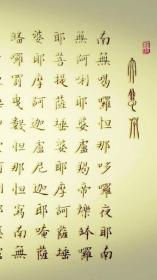 大悲咒
南無喝囉怛那哆囉夜耶南
無阿唎耶婆盧羯帝爍鉢囉
耶菩提薩埵婆耶摩訶薩埵
婆耶摩訶迦盧尼迦耶唵薩
皤囉罰曳數怛那怛寫南無